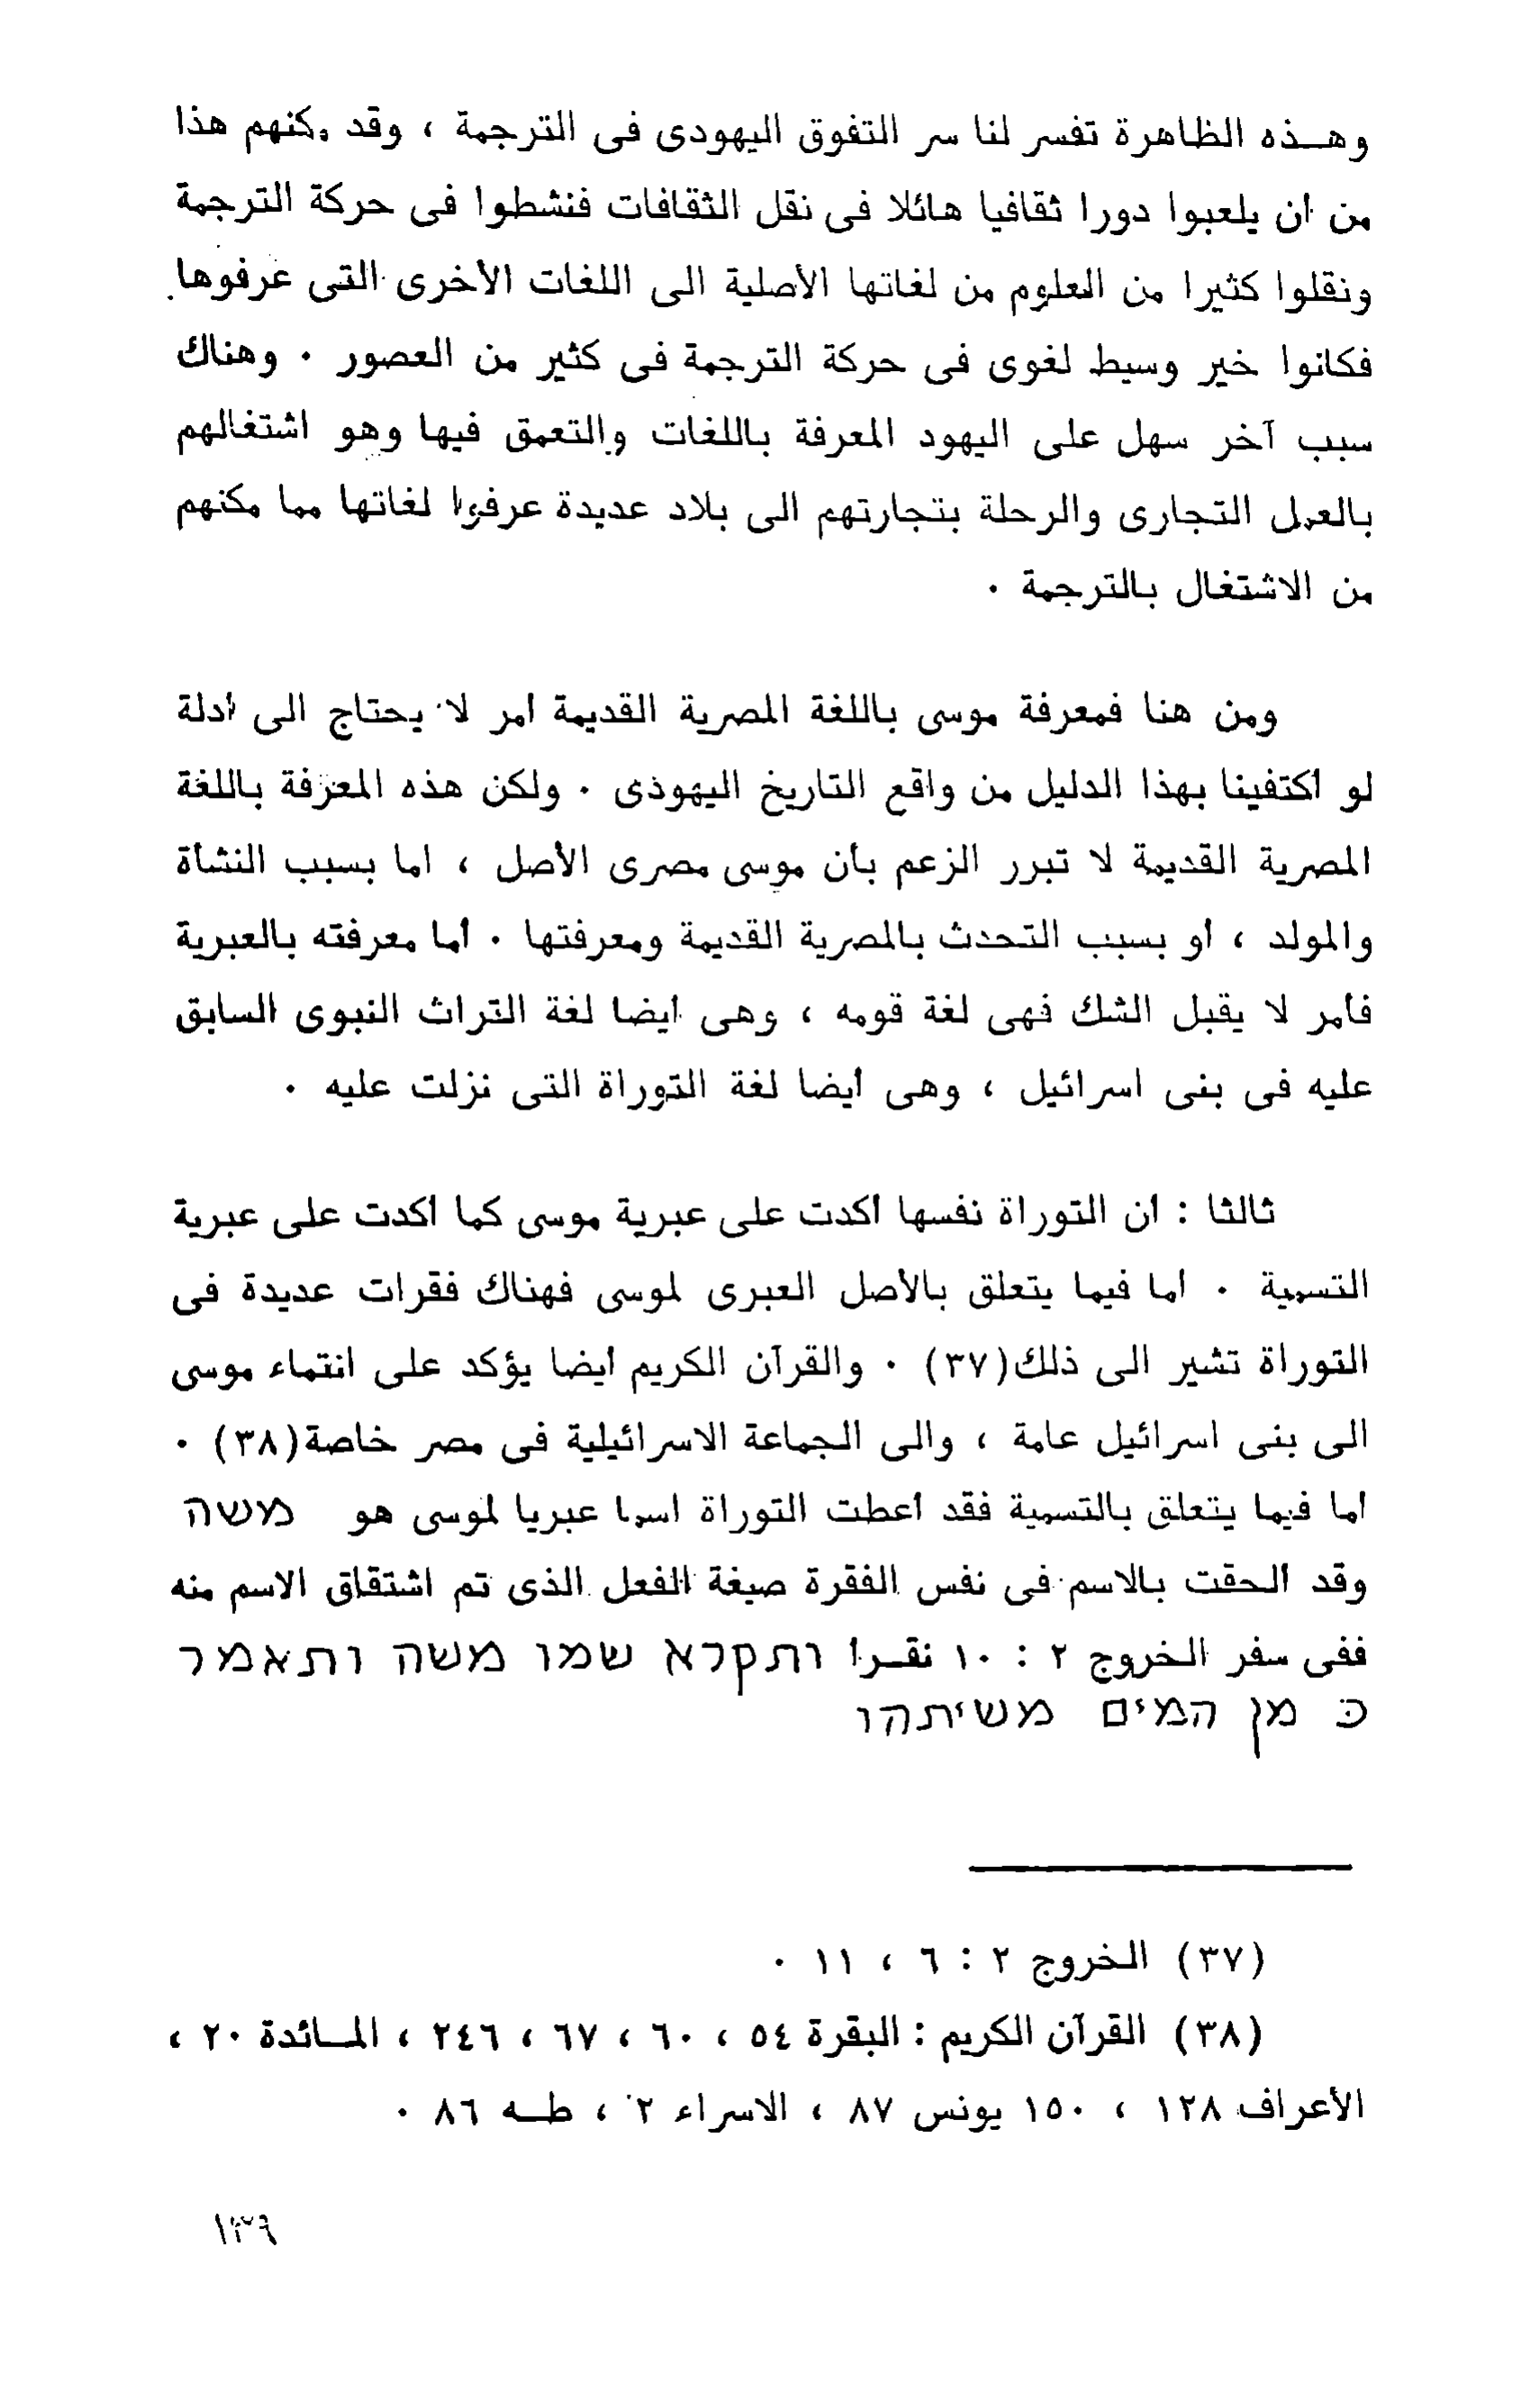 وهـذه الظاهرة تفسر لنا سر التفوق اليهودى فى الترجمة ، وقد مكنهم هذا
من ان يلعبوا دورا ثقافيا هائلا فى نقل الثقافات فنشطوا فى حركة الترجمة
ونقلوا كثيرا من العلوم من لغاتها الأصلية الى اللغات الأخرى التى عرفوها.
فكانوا خير وسيط لغوى فى حركة الترجمة فى كثير من العصور ٠ وهناك
سبب آخر سهل على اليهود المعرفة باللغات والتعمق فيها وهو اشتغالهم
بالعمل التجارى والرحلة بتجارتهم الى بلاد عديدة عرفوا لغاتها مما مكنهم
من الاشتغال بالترجمة ٠
ومن هنا فمعرفة موسى باللغة المصرية القديمة أمر لا يحتاج الى أدلة
لو اكتفينا بهذا الدليل من واقع التاريخ اليهودى ٠ ولكن هذه المعرفة باللغة
المصرية القديمة لا تبرر الزعم بأن موسى مصرى الأصل ، اما بسبب النشأة
والمولد ، أو بسبب التحدث بالمصرية القديمة ومعرفتها ٠ أما معرفته بالعبرية
فأمر لا يقبل الشك فهى لغة قومه ، وهى أيضا لغة التراث النبوى السابق
عليه فى بنى اسرائيل ، وهى أيضا لغة التوراة التى نزلت عليه ٠
ثالثا : ان التوراة نفسها أكدت على عبرية موسى كما أكدت على عبرية
التسمية ٠ أما فيما يتعلق بالأصل العبرى لموسى فهناك فقرات عديدة فى
التوراة تشير الى ذلك(٣٧) ٠ والقرآن الكريم أيضا يؤكد على انتماء موسى
الى بنى اسرائيل عامة ، والى الجماعة الاسرائيلية فى مصر خاصة(٣٨) ٠
أما فيما يتعلق بالتسمية فقد أعطت التوراة اسما عبريا لموسى هو משה
وقد ألحقت بالاسم فى نفس الفقرة صيغة الفعل الذى تم اشتقاق الاسم منه
ففى سفر الخروج ٢ : ١٠ نقـرأ ותקרא שמו משה ותאמר
כ מן המים משיתהו
(٣٧) الخروج ٢ : ٦ ، ١١ ٠
(٣٨) القرآن الكريم : البقرة ٥٤ ، ٦٠ ، ٦٧ ، ٢٤٦ ، المـائدة ٢٠ ،
الأعراف ١٢٨ ، ١٥٠ يونس ٨٧ ، الاسراء ٢ ، طـه ٨٦ ٠
١٣٩